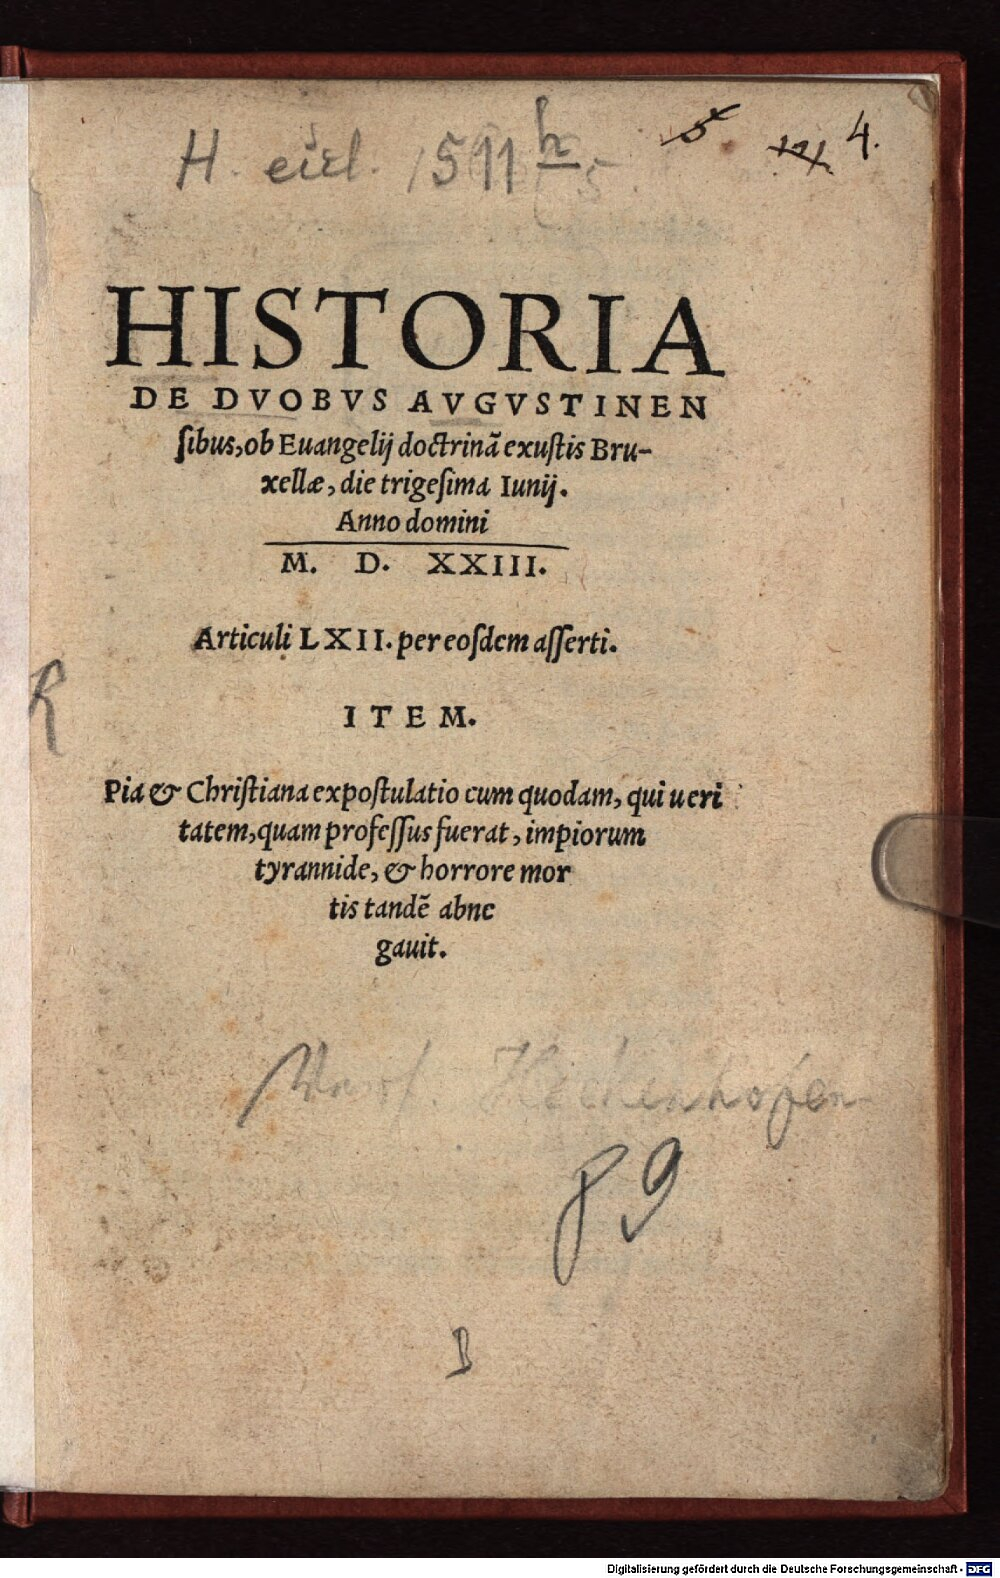 H. eccl. 1511 h 5. 5. 4.
HISTORIA
DE DVOBVS AVGVSTINEN
ſibus, ob Euangelij doctrinã exuſtis Bru-
xellæ, die trigeſima Iunij.
Anno domini
M. D. XXIII.
Articuli LXII. per eoſdem aſſerti.
ITEM.
Pia & Chriſtiana expoſtulatio cum quodam, qui ueri
tatem, quam profeſſus fuerat, impiorum
tyrannide, & horrore mor
tis tandẽ abne
gauit.
R
89
B
Digitalisierung gefördert durch die Deutsche Forschungsgemeinschaft - DFG